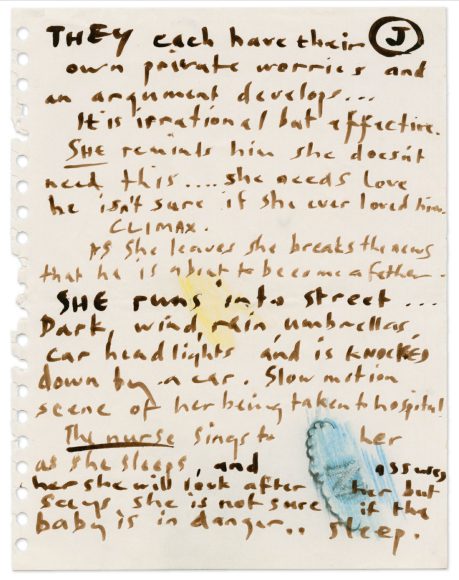 THEY each have their J
own private worries and
an argument develops...
It is irrational but effective.
SHE reminds him she doesn't
need this.... she needs love
he isn't sure if she ever loved him.
CLIMAX.
As She leaves she breaks the news
that he is about to become a father.
SHE runs into street ...
Dark, wind, rain, umbrellas,
car headlights and is KNOCKED
down by a car. Slow motion
scene of her being taken to hospital
The nurse sings to her
as she sleeps, and assures
her she will look after her but
says she is not sure if the
baby is in danger.. sleep.